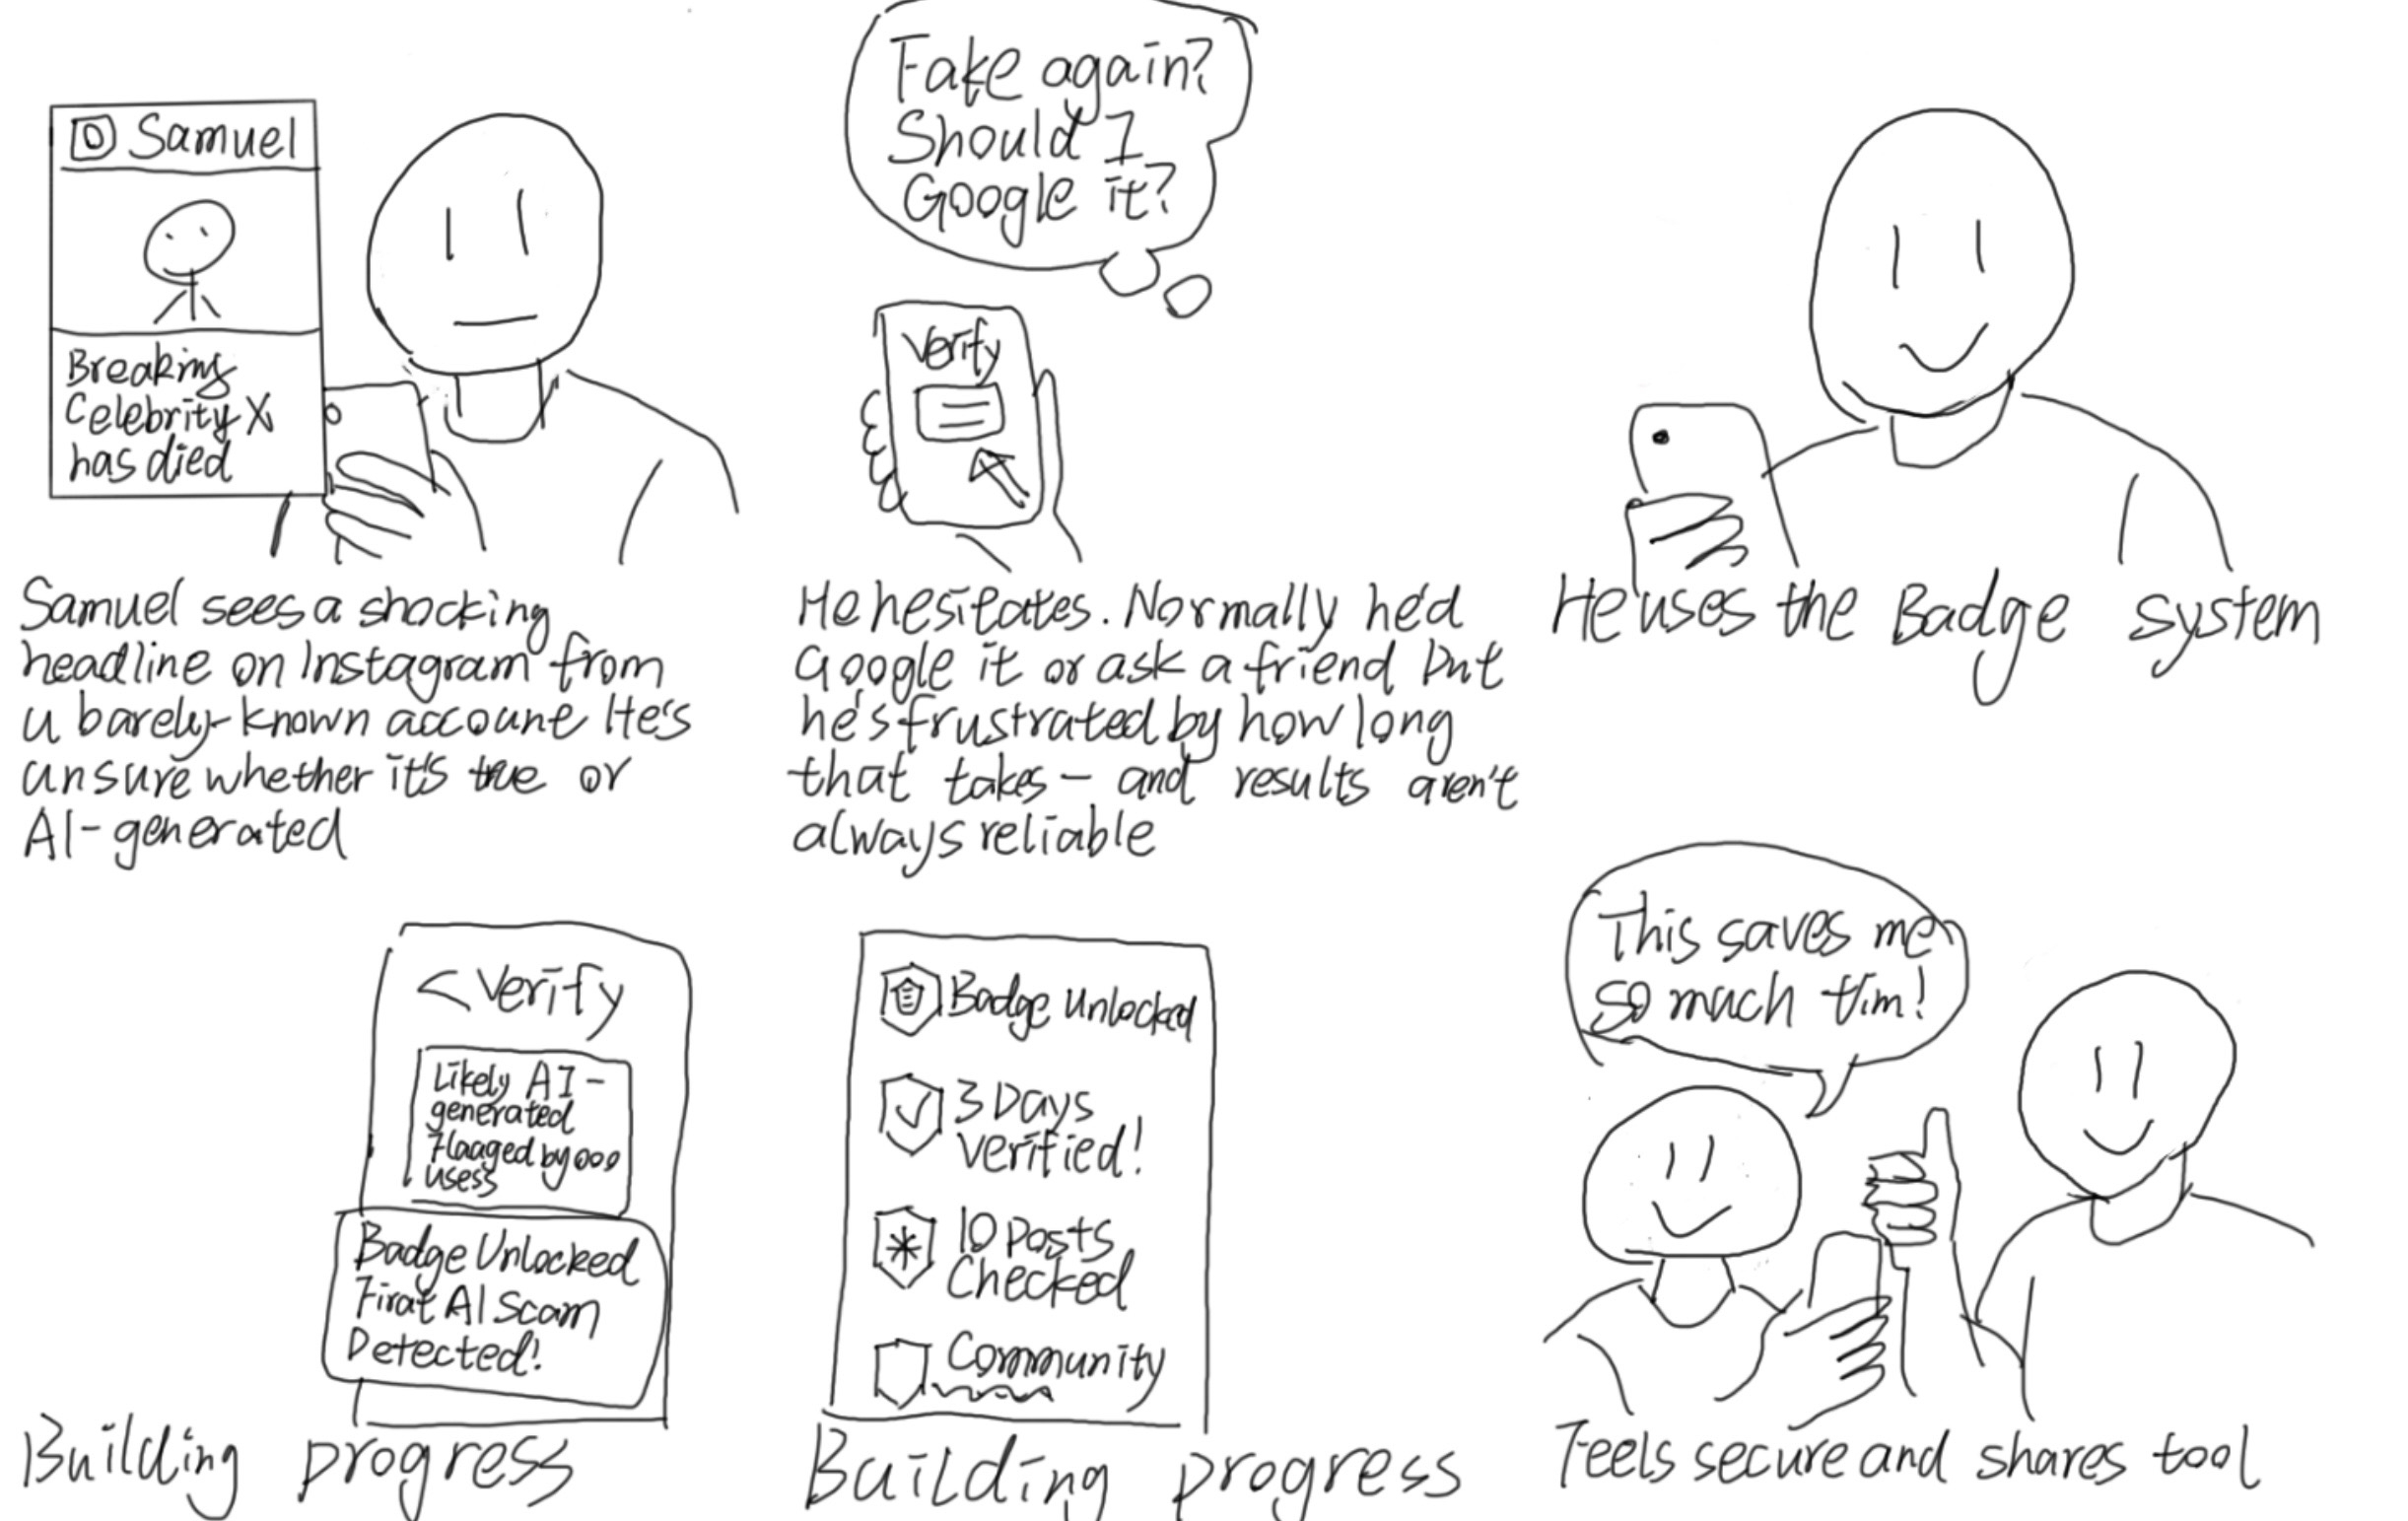 Samuel
Breaking
Celebrity X
has died
Samuel sees a shocking
headline on Instagram from
a barely-known account He's
unsure whether it's true or
AI-generated
Fake again?
Should I
Google it?
Verify
He hesitates. Normally he'd
Google it or ask a friend but
he's frustrated by how long
that takes— and results aren't
always reliable
He uses the Badge system
< Verify
Likely AI-
generated
Flaaged by 000
usess
Badge Unlocked
First AI Scam
Detected!
Building progress
Badge Unlocked
3 Days
verified!
10 posts
Checked
Community
Building progress
This saves me
so much tim!
Feels secure and shares tool